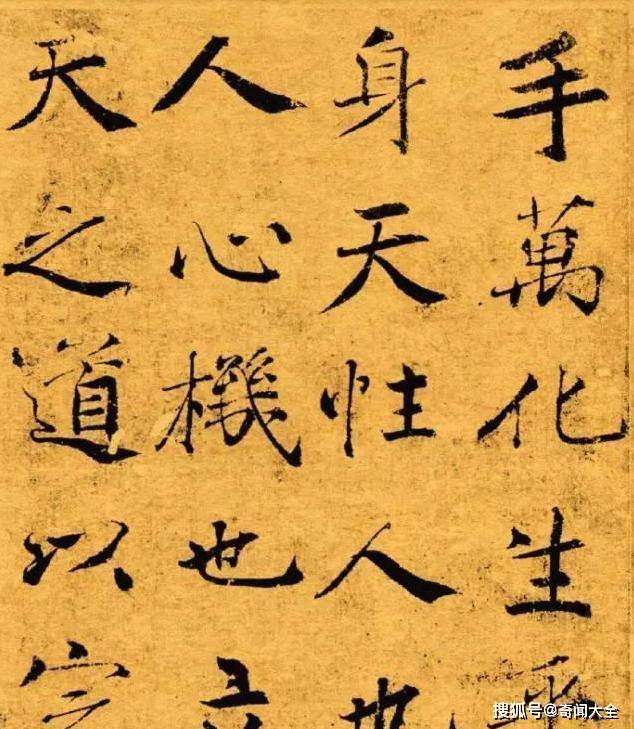 手萬化生乎
身天性人也
人心機也立
天之道以定
搜狐号@奇闻大全